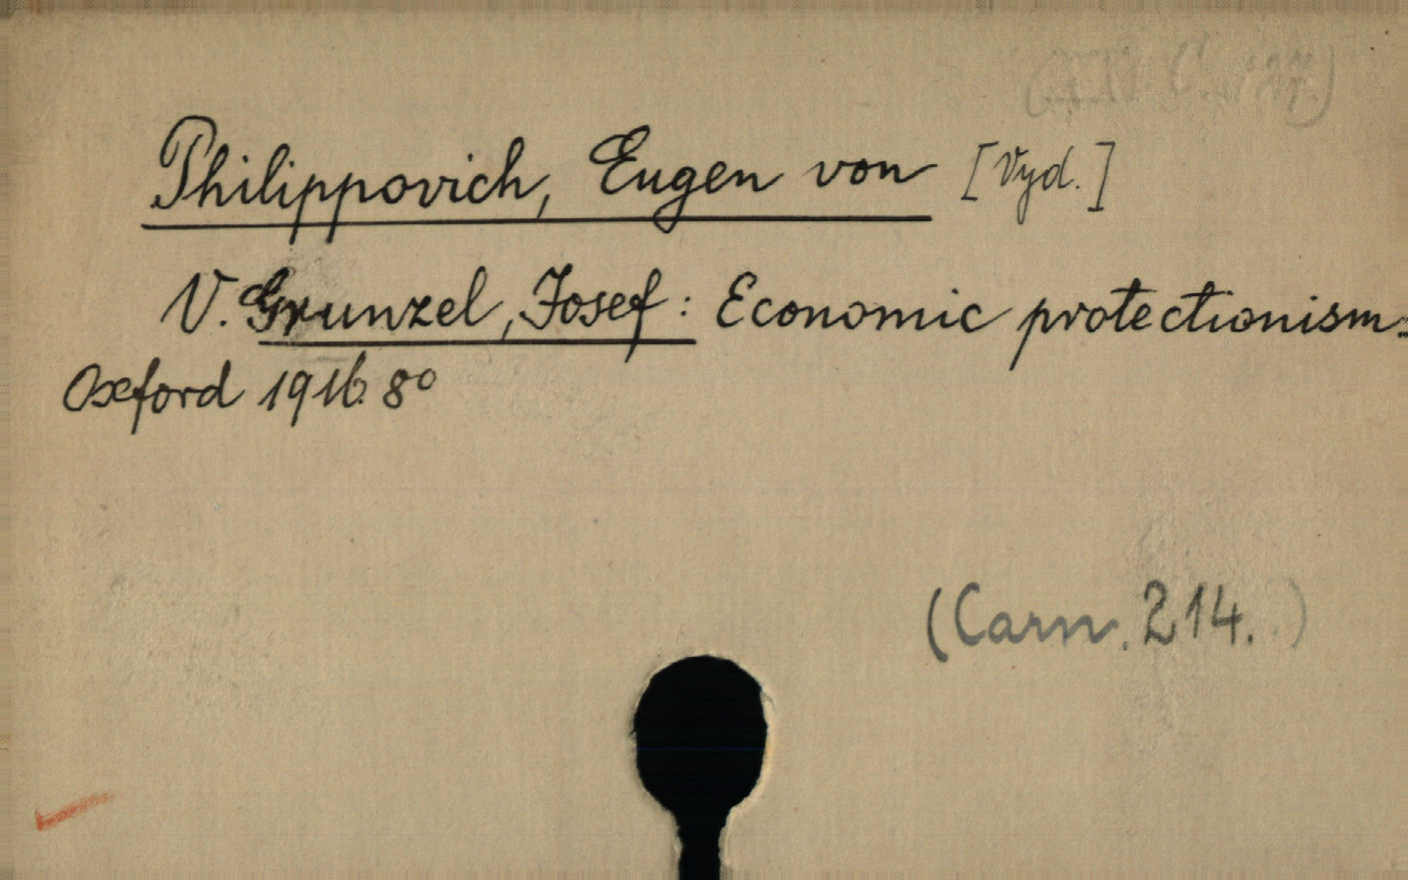 Philippovich, Eugen von [Vyd.]
V. Grunzel, Josef: Economic protectionism.
Oxford 1916. 8°
(Carn. 214.)